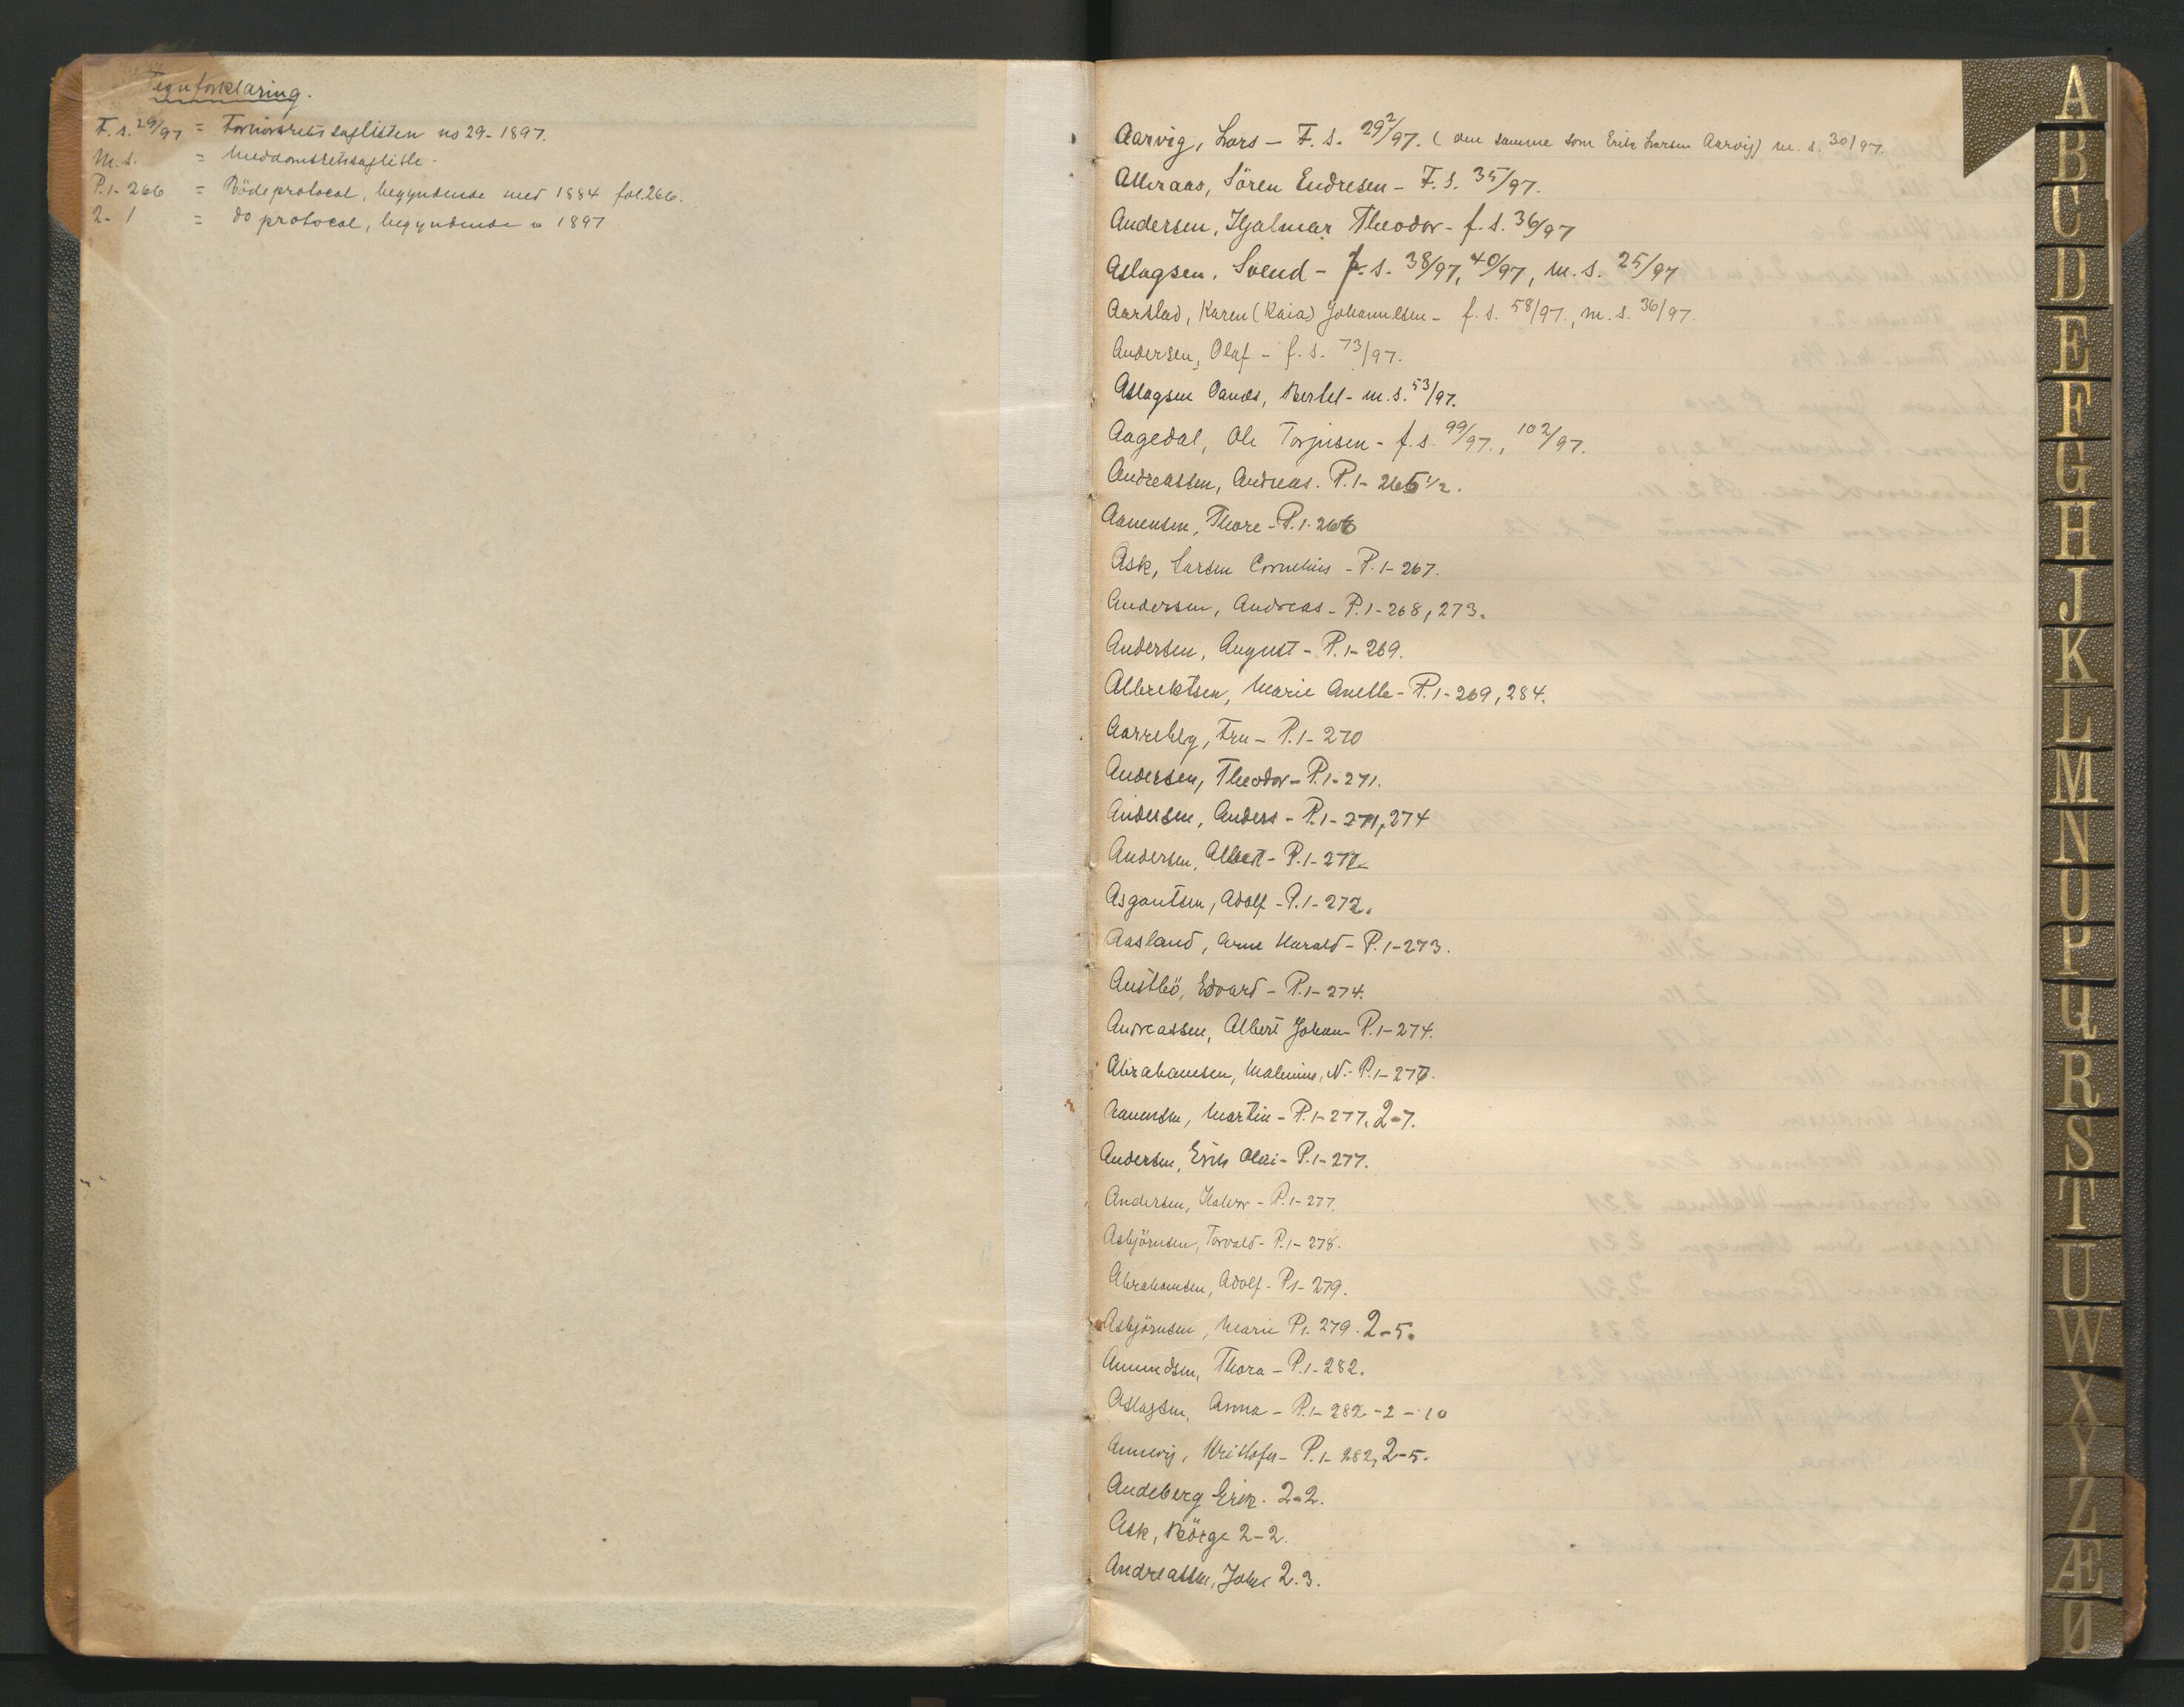 Tegnforklaring.
F. s. 29/97 = Forhörsrets saglisten no 29 - 1897.
M. s. = Meddomsretssagliste.
P. 1 - 266 = Bödeprotocol, begyndende med 1884 fol. 266.
2 - 1 = do protocol, begyndende " 1897
Aarvig, Lars - F. s. 29²/97. (den samme som Erik Larsen Aarvig) m. s. 30/97.
Sören Endresen - F. s. 35/97.
Andersen, Hjalmar Theodor - f. s. 36/97
Aslagsen, Svend - f. s. 38/97, 40/97, m. s. 25/97
Aarstad, Karen (Kaia) Johannesen - f. s. 58/97., m. s. 36/97.
Andersen, Olaf - f. s. 73/97.
Aslagsen Bertel - m. s. 53/97.
Aagedal, Ole Torjusen - f. s. 99/97., 102/97.
Andreassen, Andreas. P. 1 - 265 1/2.
Aanensen, Thore - P. 1 - 266
Ask, Larsen Cornelius - P. 1 - 267.
Andersen, Andreas - P. 1 - 268, 273.
Andersen, August - P. 1 - 269.
Albrektsen, Marie Anette - P. 1 - 269, 284.
Fru - P. 1 - 270
Andersen, Theodor - P. 1 - 271.
Andersen, Anders - P. 1 - 271, 274
Andersen, Albert - P. 1 - 272
Asgautsen, Adolf - P. 1 - 272.
Aasland, Arne Harald - P. 1 - 273.
Austbö, Edvard - P. 1 - 274.
Andreassen, Albert Johan - P. 1 - 274.
Abrahamsen, Malmine, N. - P. 1 - 276.
Aanensen, Martin - P. 1 - 277, 2-7.
Andersen, Erik Olai - P. 1 - 277.
Andersen, Halvor - P. 1 - 277.
Asbjörnsen, Torvald - P. 1 - 278.
Abrahamsen, Adolf - P. 1 - 279.
Asbjörnsen, Marie P. 1. 279. 2-5.
Amundsen, Thora - P. 1 - 282.
Aslagsen, Anna - P. 1 - 282 - 2 - 10
Kristofer - P. 1 - 282, 2-5.
Andeberg Erik. 2-2.
Ask, Börge 2-2.
Andreassen, Johs 2.3.
A
B
C
D
E
F
G
H
J
K
L
M
N
O
P
Q
R
S
T
U
W
X
Y
Z
Æ
Ø